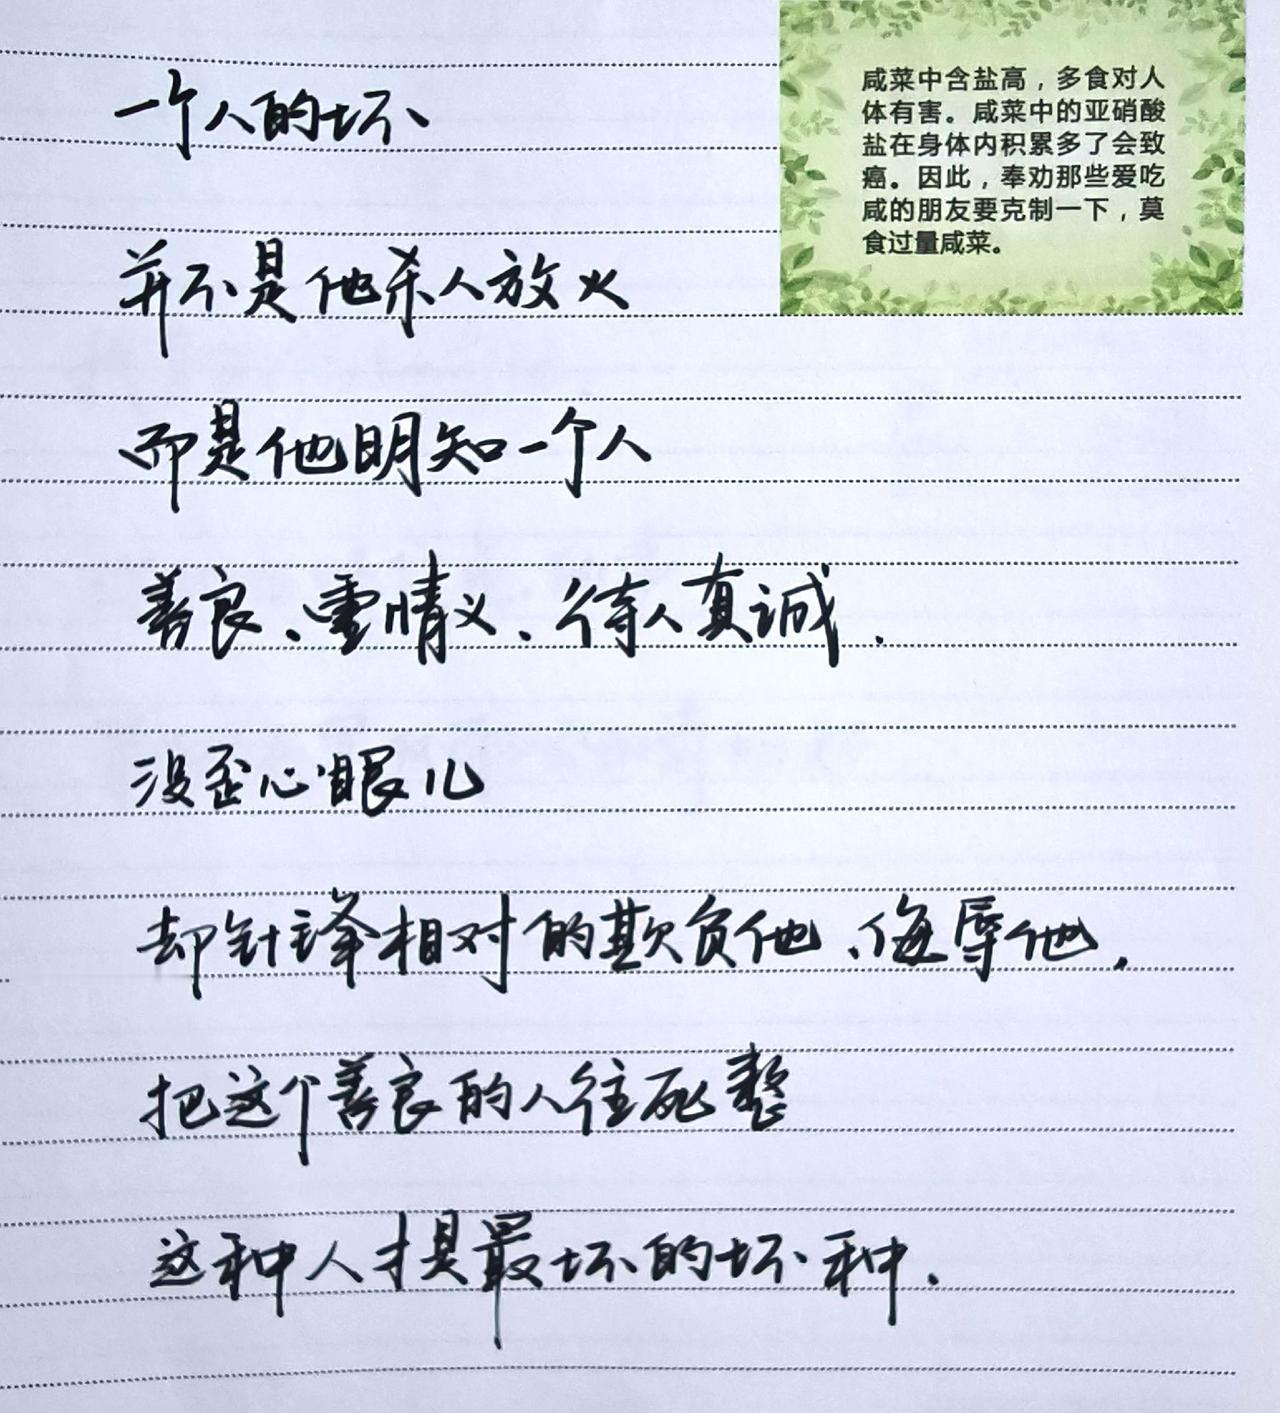 一个人的坏、
并不是他杀人放火
而是他明知一个人
善良、重情义、待人真诚.
没歪心眼儿
却针锋相对的欺负他、侮辱他.
把这个善良的人往死整
这种人才是最坏的坏种.
咸菜中含盐高，多食对人
体有害。咸菜中的亚硝酸
盐在身体内积累多了会致
癌。因此，奉劝那些爱吃
咸的朋友要克制一下，莫
食过量咸菜。